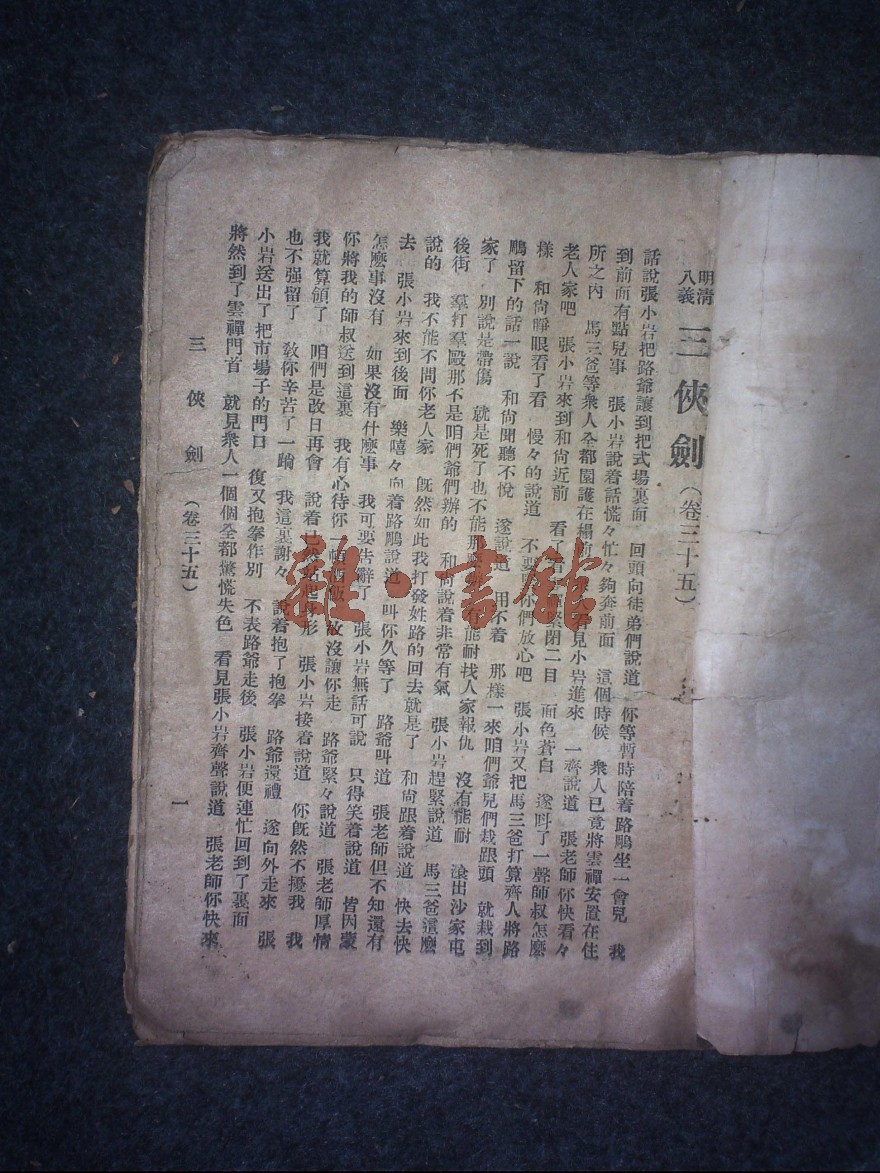 明清
八義
三俠劍(卷三十五)
話說張小岩把路爺讓到把式場裏面 回頭向徒弟們說道 你等暫時陪着路鵰坐一會兒 我
到前面有點兒事 張小岩說着話慌々忙々夠奔前面 這個時候 衆人已竟將雲禪安置在住
所之內 馬三爸等衆人全都圍護在榻前 看見小岩進來 一齊說道 張老師你快看々
老人家吧 張小岩來到和尚近前 看了 緊閉二目 面色蒼白 遂呌了一聲師叔怎麼
樣 和尚睜眼看了看 慢々的說道 不要 你們放心吧 張小岩又把馬三爸打算齊人將路
鵰留下的話一說 和尚聞聽不悅 遂說道 用不着 那樣一來咱們爺兒們栽跟頭 就栽到
家了 別說是帶傷 就是死了也不能那 有能耐找人家報仇 沒有能耐 滾出沙家屯
後街 羣打羣毆那不是咱們爺們辦的 和尚說着非常有氣 張小岩趕緊說道 馬三爸這麼
說的 我不能不問你老人家 旣然如此我打發姓路的回去就是了 和尚跟着說道 快去快
去 張小岩來到後面 樂嘻々向着路鵰說道 叫你久等了 路爺叫道 張老師但不知還有
怎麼事沒有 如果沒有什麼事 我可要告辭了 張小岩無話可說 只得笑着說道 皆因蒙
你將我的師叔送到這裏 我有心待你 頓 飯 故沒讓你走 路爺緊々說道 張老師厚情
我就算領了 咱們是改日再會 說着 站起身形 張小岩接着說道 你旣然不擾我 我
也不强留了 敎你辛苦了一蹹 我這裏謝々 說着抱了抱拳 路爺還禮 遂向外走來 張
小岩送出了把市場子的門口 復又抱拳作別 不表路爺走後 張小岩便連忙回到了裏面
將然到了雲禪門首 就見衆人一個個全都驚慌失色 看見張小岩齊聲說道 張老師你快來
三俠劍 (卷三十五) 一
雜·書館